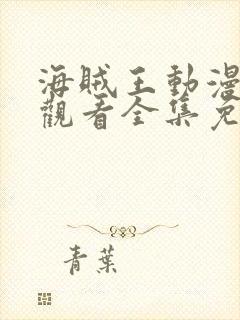 海賊王動漫
觀看全集免
青葉